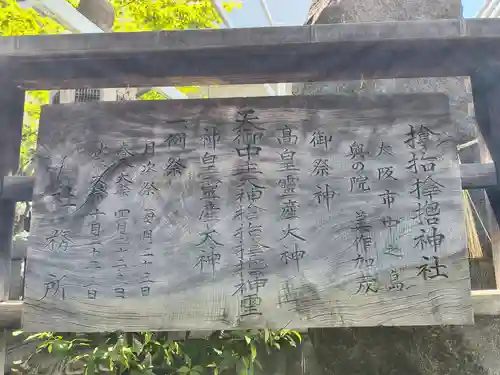 神社
大阪市中之島
奥の院 美作加茂
御祭神
高皇霊産大神
天御中主大神
神皇霊産大神
例祭
月次祭 毎月二十三日
春大祭 四月二十三日
大祭 十月二十二日
社務所